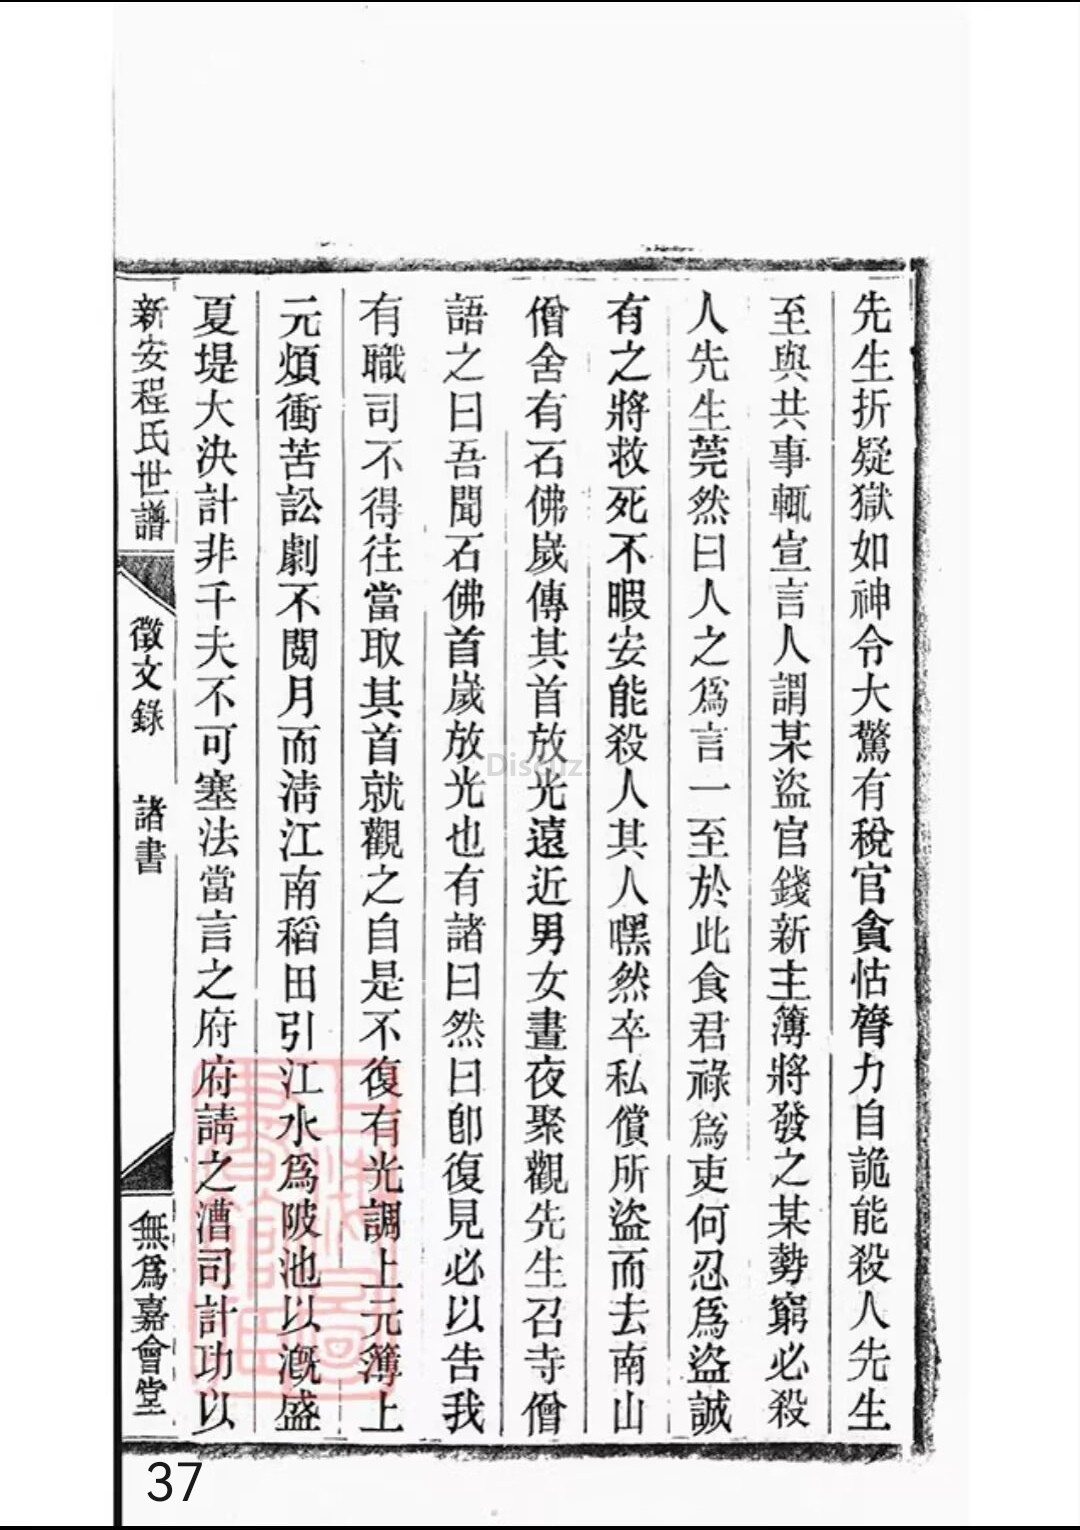 先生折疑獄如神令大驚有稅官貪怙膂力自詭能殺人先生
至與共事輒宣言人謂某盜官錢新主簿將發之某勢窮必殺
人先生莞然曰人之爲言一至於此食君祿爲吏何忍爲盜誠
有之將救死不暇安能殺人其人嘿然卒私償所盜而去南山
僧舍有石佛嵗傳其首放光遠近男女晝夜聚觀先生召寺僧
語之曰吾聞石佛首嵗放光也有諸曰然曰卽復見必以告我
有職司不得往當取其首就觀之自是不復有光調上元簿上
元煩衝苦訟劇不閱月而淸江南稻田引江水爲陂池以漑盛
夏堤大決計非千夫不可塞法當言之府府請之漕司計功以
新安程氏世譜
徵文錄 諸書
無爲嘉會堂
上海圖書館藏
Discuz!
37